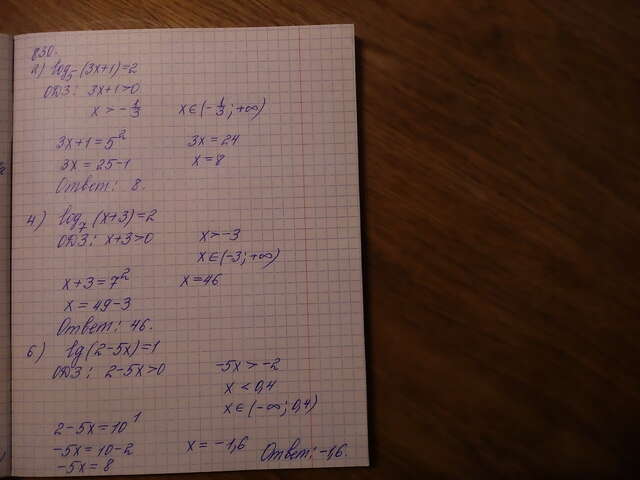 830.
2) log₅(3x+1)=2
ОДЗ: 3x+1>0
x>-1/3 x∈(-1/3; +∞)
3x+1=5² 3x=24
3x=25-1 x=8
Ответ: 8.
4) log₇(x+3)=2
ОДЗ: x+3>0 x>-3
x∈(-3; +∞)
x+3=7² x=46
x=49-3
Ответ: 46.
6) lg(2-5x)=1
ОДЗ: 2-5x>0 -5x>-2
x<0,4
x∈(-∞; 0,4)
2-5x=10¹
-5x=10-2 x=-1,6 Ответ: -1,6.
-5x=8